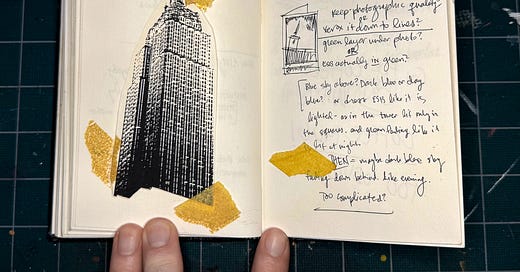 Keep photographic quality?
or
xerox it down to lines?
green layer under photo?
OR
ESB actually in green?
Blue sky above? Dark blue or day
blue? or draw ESB like it is
lighted - as in the tower lit only in
the squares, and green fading like it
lit at night.
THEN = maybe dark blue sky
fading down behind like evening.
Too complicated?